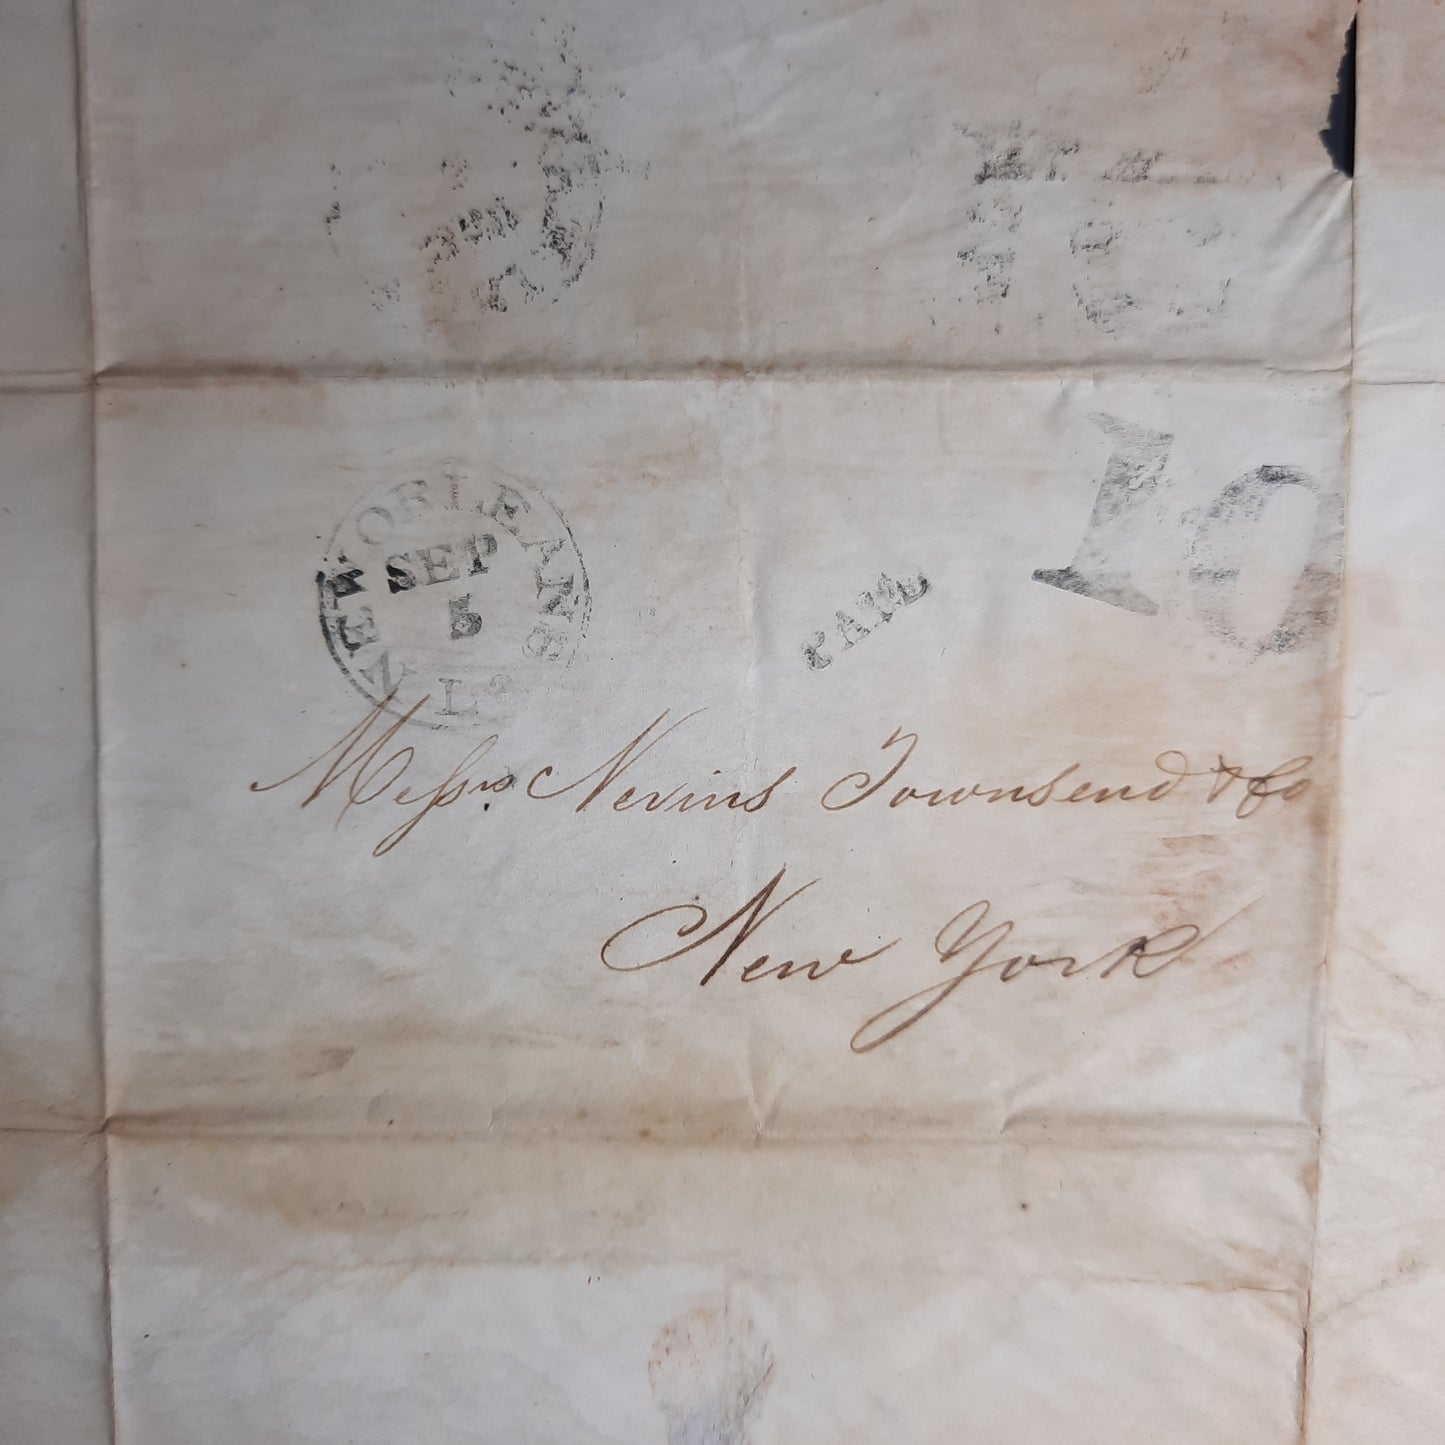 NEW ORLEANS Ls
SEP
5
PAID
10
Messrs. Nevins Townsend & Co
New York